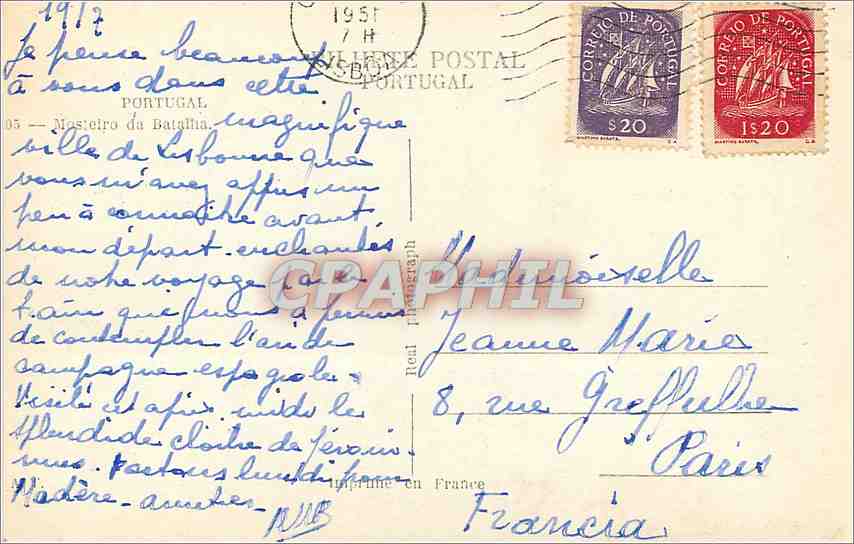 19/7
Je pense beaucoup
à vous dans cette
magnifique
ville de Lisbonne que
vous m'avez appris un
peu à connaître avant
mon départ. enchantés
de notre voyage par le
train qui nous a permis
de contempler l'aride
campagne espagnole.
Visité cet après midi le
splendide cloître de Jéroni-
mus. Partons lundi pour
Madère - amitiés
1951
7 H
BILHETE POSTAL
PORTUGAL
PORTUGAL
05 — Mosteiro da Batalha.
CORREIO DE PORTUGAL
$20
MARTINS BARATA
CORREIO DE PORTUGAL
1$20
MARTINS BARATA
Real photograph
CPAPHIL
Mademoiselle
Jeanne Marie
8, rue Greffulhe
Paris
Francia
Imprimé en France